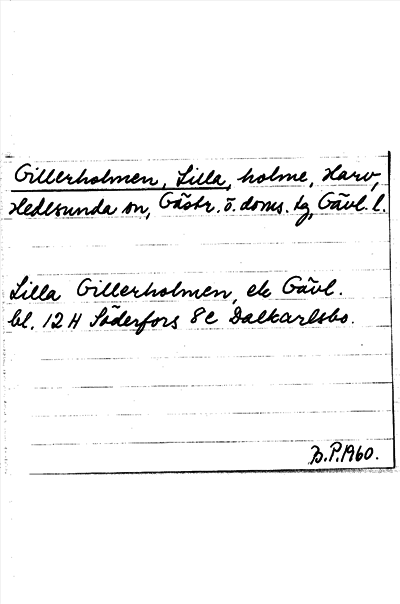 Gillerholmen, Lilla, holme, Harv,
Hedesunda sn, Gästr. ö. doms. tg, Gävl. l.
Lilla Gillerholmen, ek Gävl.
bl. 12 H Söderfors 8 c Dalkarlsbo.
B.P. 1960.